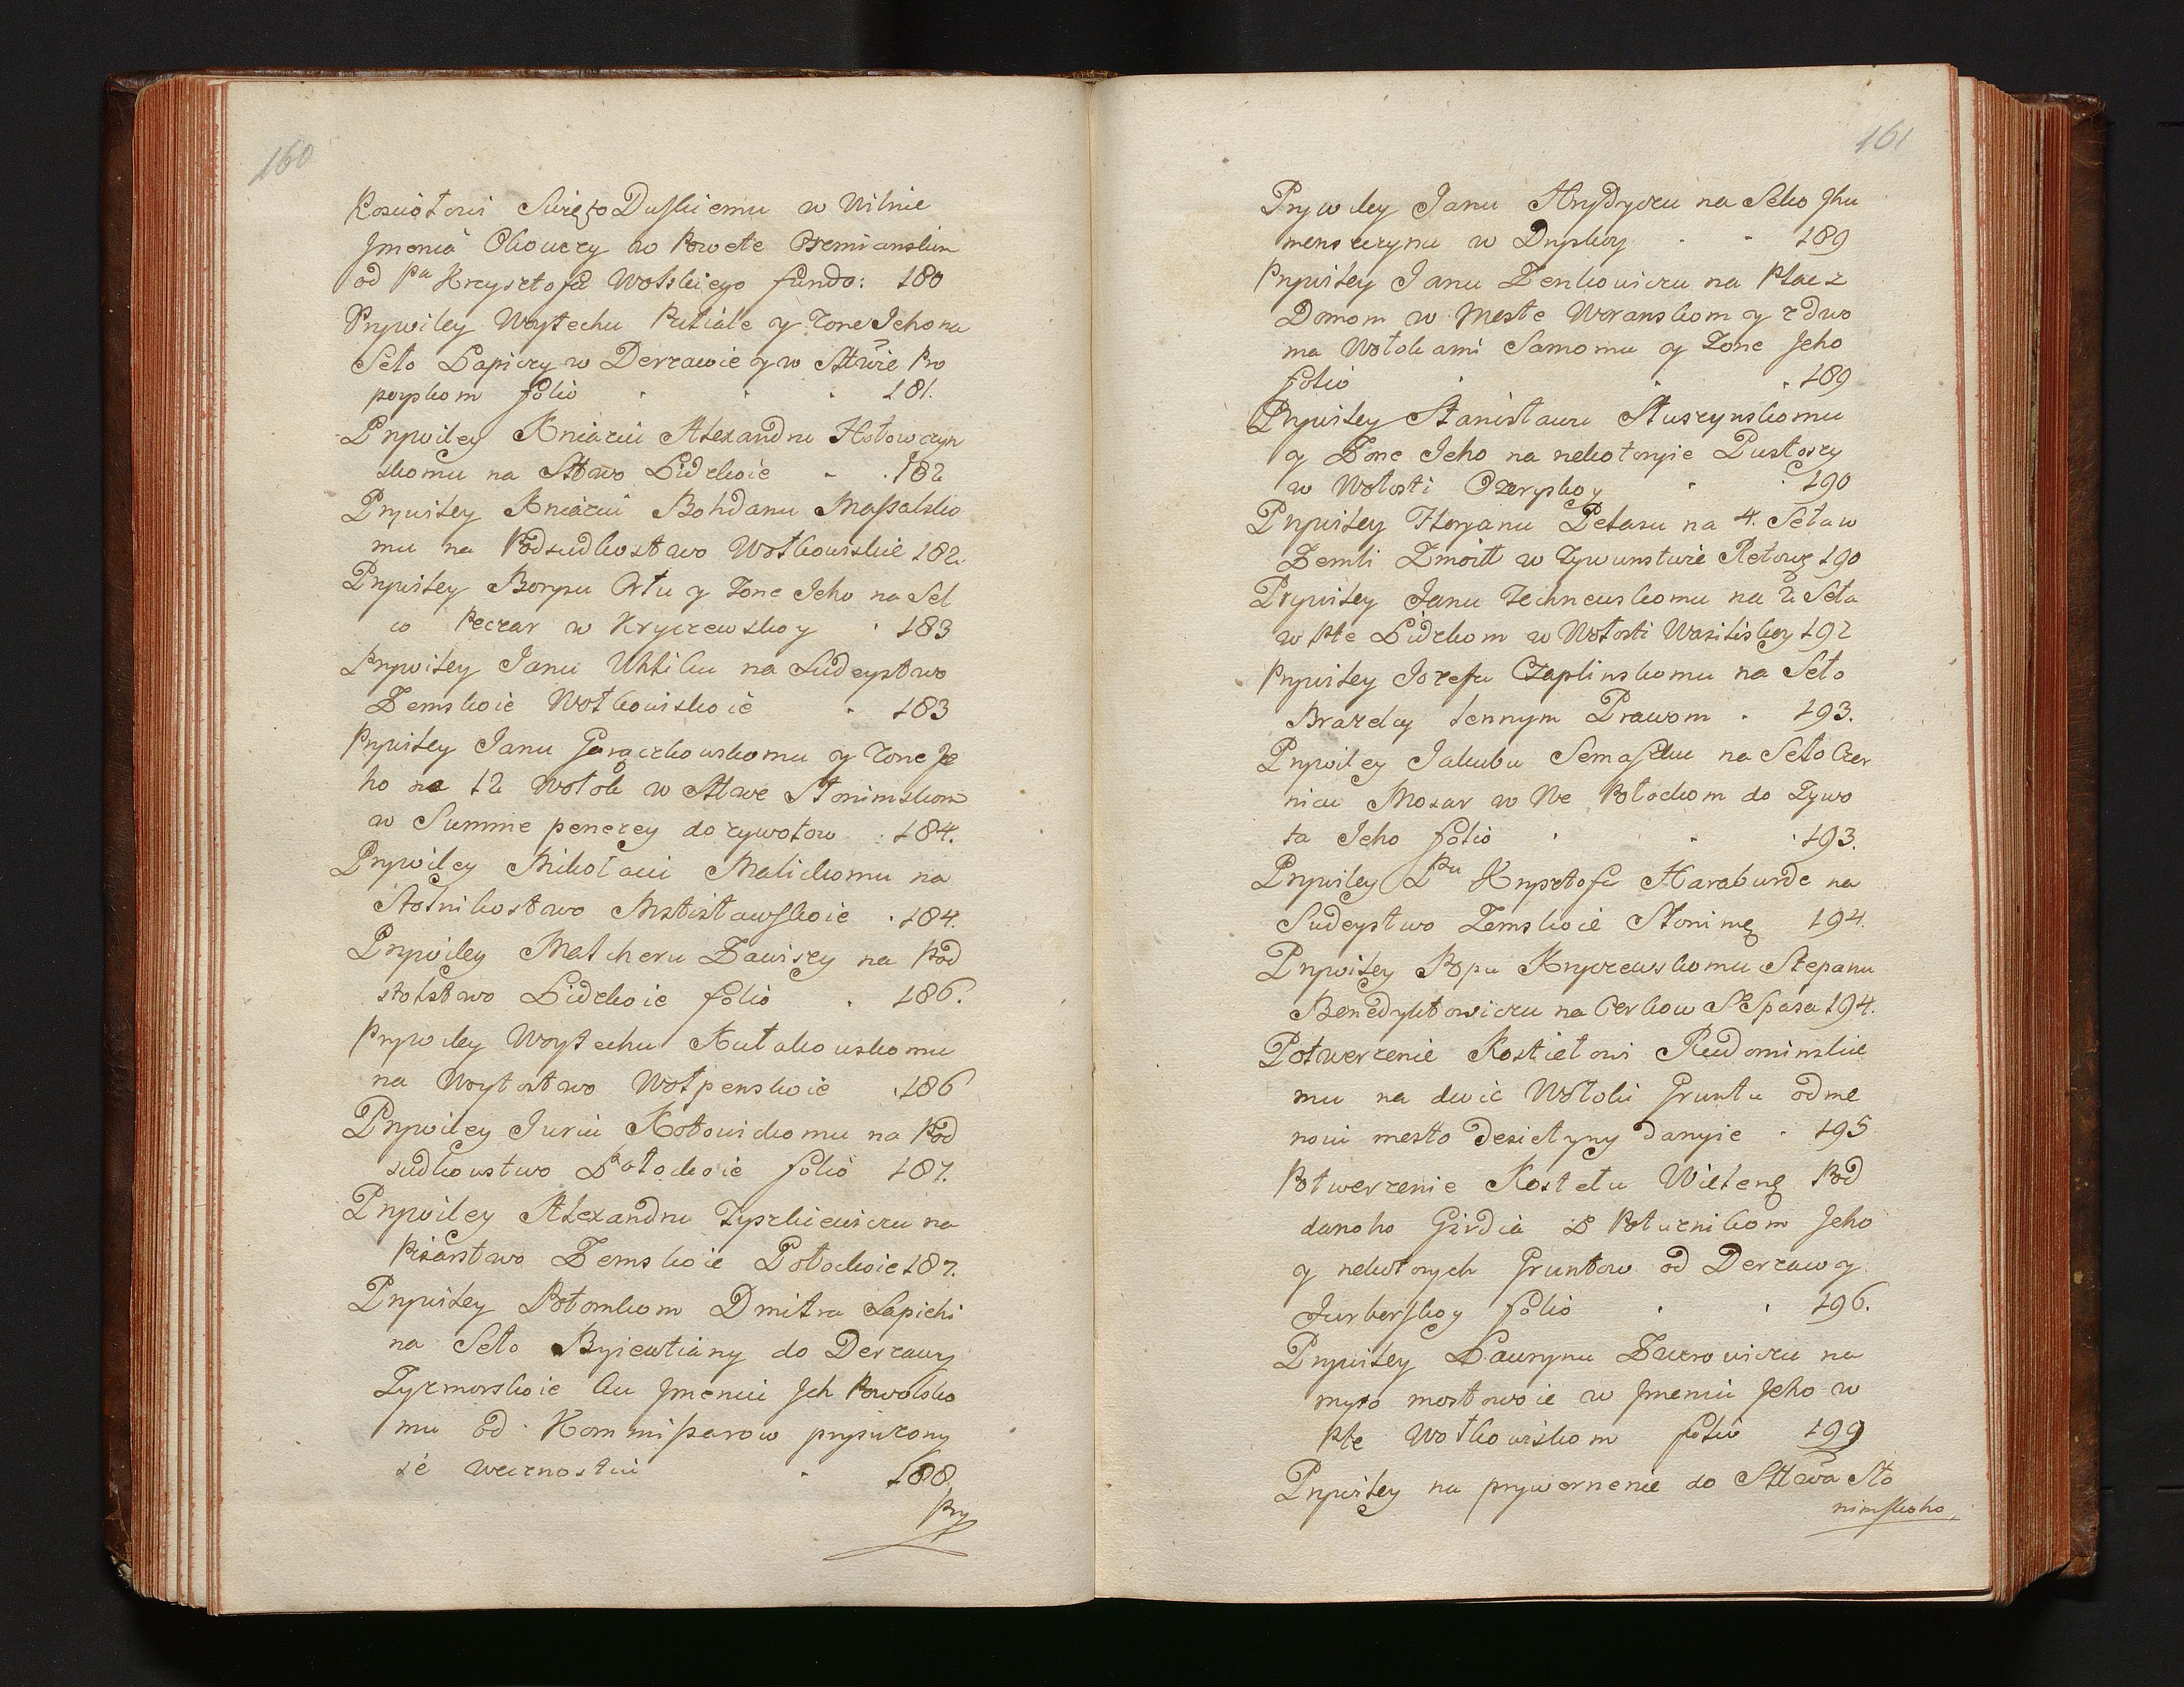 160
Kosciołowi Święto Duskiemu w Wilnie
Jmenia Chowczy w Powete Oszmianskim
od Pa Krzysztofa Wolskiego fundo: 180
Prywiley Woytechu Putiale y Zone Jeho na
Seło Łapiczy w Derzawie y w Sttwie Pro
poyskom folio 181.
Prywiley Kniaziu Alexandru Hołowczyn
skomu na Sttwo Lidzkoie 182
Prywiley Kniaziu Bohdanu Massalsko
mu na Podsudkostwo Wołkowiskie 182
Prywiley Borysu Ortu y Zone Jeho na Sel
co Peczar w Kryczewskoy 183
Prywiley Janu Uhliku na Sudeystwo
Zemskoie Wołkowiskoie 183
Prywiley Janu Gorączkowskomu y Zone Je
ho na 12 Wołok w Sttwe Słonimskom
w Summe penezey do zywotow 184.
Prywiley Mikołaiu Malickomu na
Stolnikostwo Mstisławskoie 184.
Prywiley Malcheru Zawiszy na Pod
stolstwo Lidzkoie folio 186.
Prywiley Woytechu Kułakowskomu
na Woytostwo Wołpenskoie 186
Prywiley Juriu Kotowickomu na Pod
sudkowstwo Połockoie folio 187.
Prywiley Alexandru Zyszkiewiczu na
Pisarstwo Zemskoie Połockoie 187.
Prywiley Potomkom Dmitra Sapiehi
na Seło Byiewtiany do Derzawy
Zyzmorskoie ku Jmeniu Jch Kowolsko
mu od Kommissarow prypuzony
ie wecznostiu 188.
Pry
161
Prywiley Janu Hrydyczu na Selco Jhu
menszczynu w Dryskoy 189
Prywiley Janu Zenkowiczu na Płac z
Domom w Meste Woranskom y z dwo
ma Wołokami Samomu y Zone Jeho
folio 189
Prywiley Stanisławu Słuszynskomu
y Zone Jeho na nekotoryie Pustoszy
w Wołosti Ozeryskoy 190
Prywiley Hoyanu Petaru na 4. Seła w
Zemli Zmoitt w Tywunstwie Retowę 190
Prywiley Janu Techneuskomu na 2 Seła
w Pte Lidzkom w Wołosti Wasiliskoy 192
Prywiley Jozefu Czaplinskomu na Seło
Brazdcy lennym Prawom 193.
Prywiley Jakubu Semaszku na Seło Czer
nicu Mosar w We Połockom do Zywo
ta Jeho folio 193.
Prywiley Pnu Krysztofu Haraburde na
Sudeystwo Zemskoie Słonimę 194.
Prywiley Popu Kryczewskomu Stepanu
Benedyktowiczu na Cerkow S Spasa 194.
Potwerzenie Kostiełowi Rudominskie
mu na dwie Wołoki Gruntu odme
noiu mesto desietyny danyie 195
Potwerzenie Kostełu Wielenę Pod
danoho Girdia z Potuznikom Jeho
y nekotorych Gruntow od Derzawy
Jurborskoy folio 196.
Prywiley Ławrynu Zurowiczu na
myto mostowoie w Jmeniu Jeho w
Pte Wołkowiskom folio 199
Prywiley na prywernenie do Sttwa Sło
nimskoho